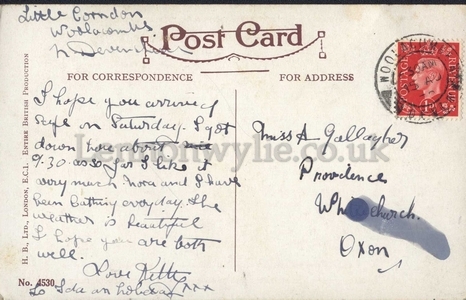 Little Corndon
Woolacombe
N Devonshire
Post Card
FOR CORRESPONDENCE
FOR ADDRESS
I hope you arrived
safe on Saturday. I got
down here about
9/30 so far I like it
very much Nora and I have
been bathing everyday the
weather is beautiful
I hope you are both
well.
Love Kitty
xxx
Miss A Gallagher
Providence
Whitchurch.
Oxon
POSTAGE
REVENUE
1D
H. B., LTD., LONDON, E.C.1. ENTIRE BRITISH PRODUCTION
No. 4530.